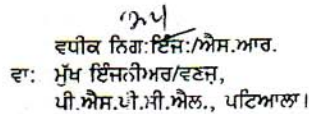 ਵਧੀਕ ਨਿਗ:ਇੰਜ:/ਐਸ.ਆਰ.
ਵਾ: ਮੁੱਖ ਇੰਜਨੀਅਰ/ਵਣਜ,
ਪੀ.ਐਸ.ਪੀ.ਸੀ.ਐਲ., ਪਟਿਆਲਾ।